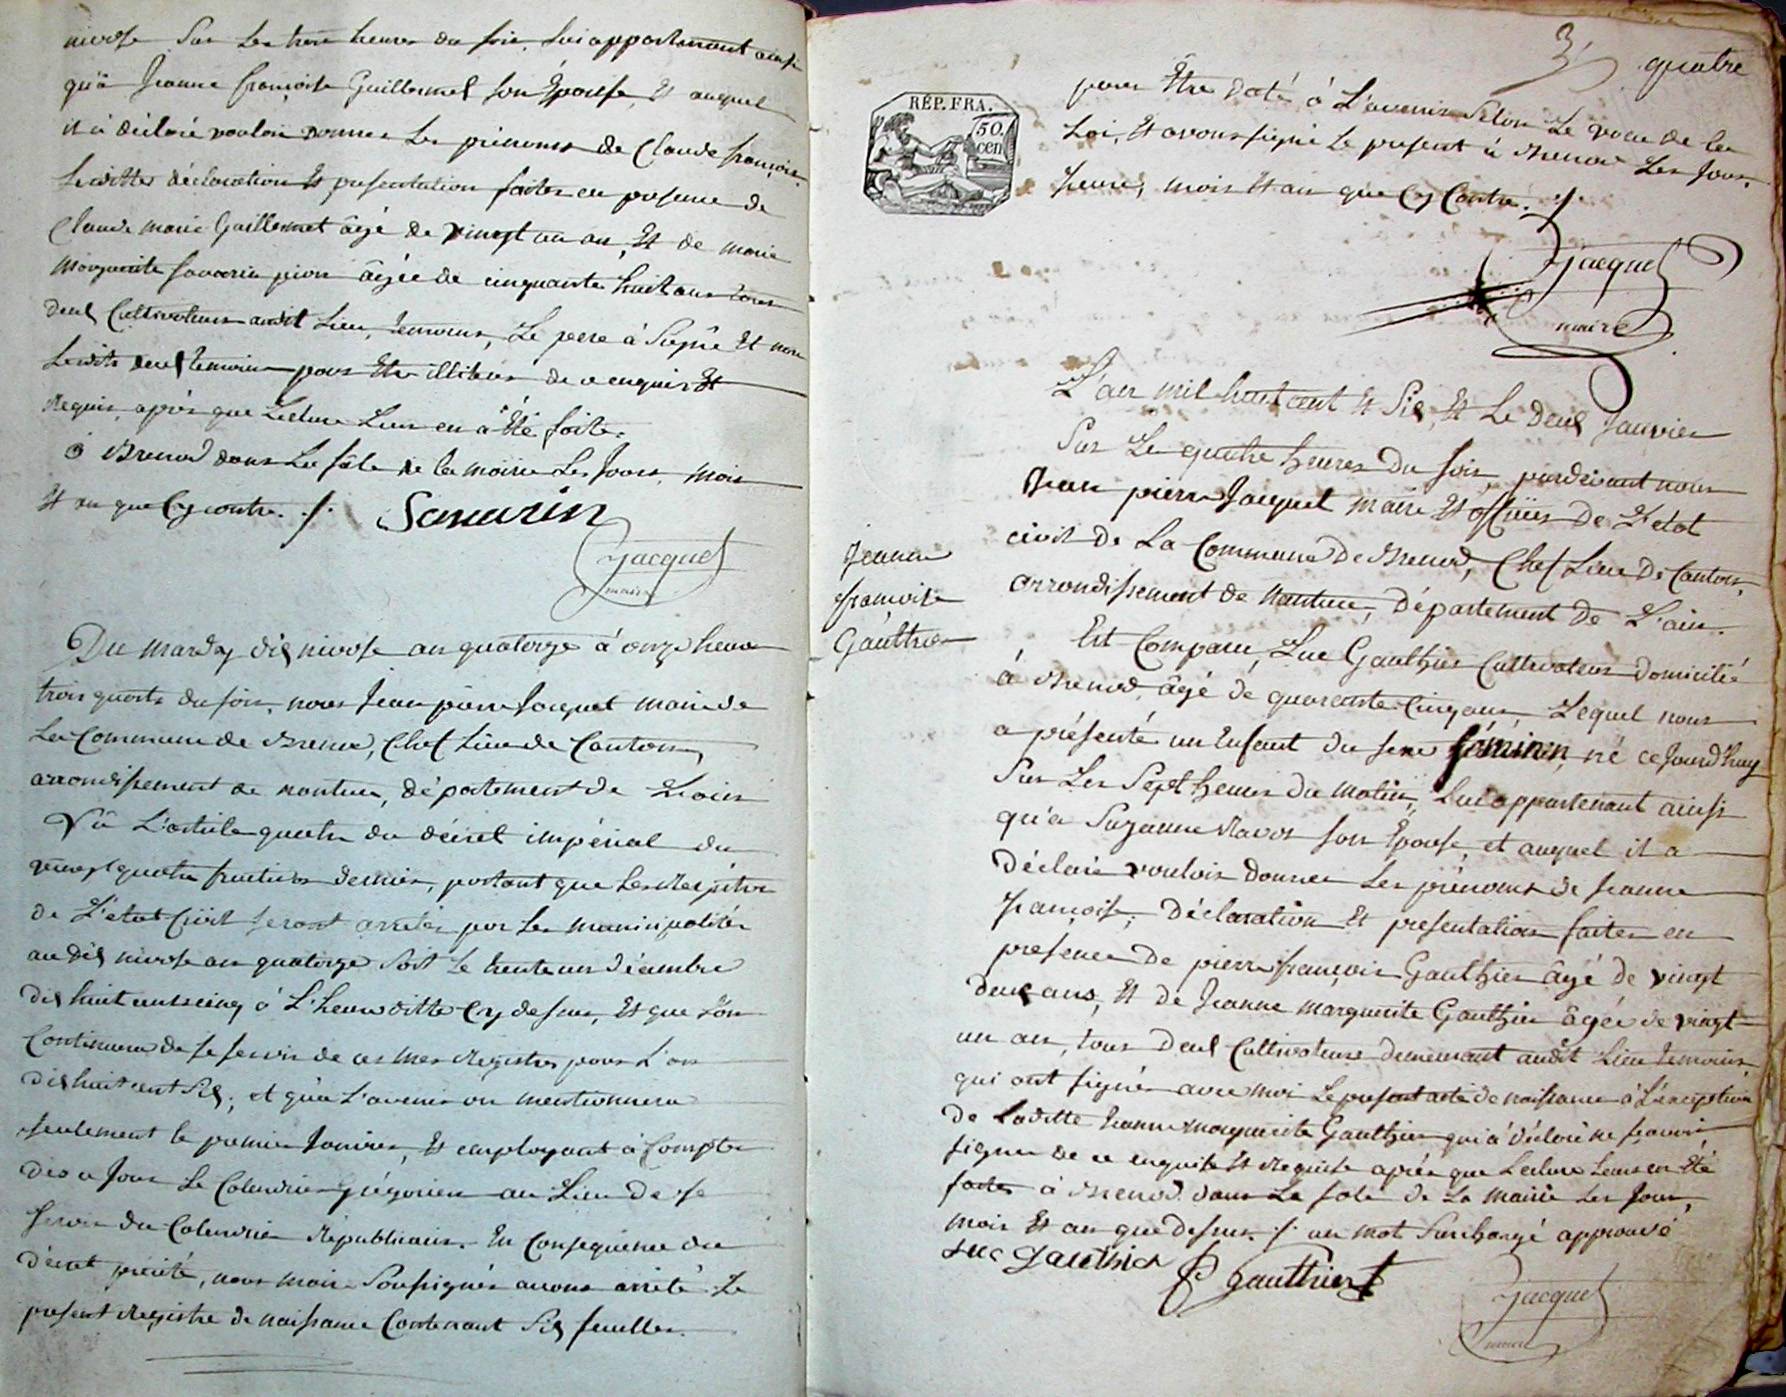 nivose Sur les trois heures du soir, lui appartenant ainsi
qu'à Jeanne françoise Guillermet son Epouse, Et auquel
il à déclaré vouloir donner les prénoms de Claude françois.
Lesdittes déclaration Et présentation faites en présence de
Claude marie Guillermet âgé de vingt un an, Et de marie
Marguerite Savarin pion âgée de cinquante huit ans tous
deux Cultivateurs audit Lieu, temoins, Le pere à Signé Et non
Lesdits deux temoins pour Etre illiteres de ce enquis Et
Requis, après que Lecture Leur en à Eté faite.
à Brenod dans La sale de la mairie Les Jours, mois
Et an que Cy contre. /.
Savarin
Jacquet
maire
Du mardy dix nivose an quatorze à onze heures
trois quarts du soir, nous Jean pierre Jacquet maire de
La Commune de Brenod, Chef Lieu de Canton,
arrondissement de nantua, département de L'ain
Vû L'article quatre du décret impérial du
vingt quatre fructidor dernier, portant que Les Registres
de L'état Civil seront arretés par Les municipalités
au dix nivose an quatorze soit Le trente un décembre
dix huit cent cinq à L'heure ditte Cy dessus, Et que L'on
Continuera de se servir de ces mes Registres pour L'an
dix huit cent six; et qu'à L'avenir on mentionnera
seulement le premier Janvier, Et employant à Compter
de ce Jour Le Calendrier grégorien au Lieu de se
servir du Calendrier Républicain. En Consequence du
décret précité, nous maire Soussignés avons arrêté Le
present Registre de naissance Contenant Six feuilles.
3 quatre
RÉP. FRA.
50.
cen
pour Etre daté à L'avenir Selon Le vœu de la
Loi, Et avons signé Le present à Brenod Les Jour,
heure, mois Et an que Cy Contre. /.
Jacquet
maire
L'an mil huit cent Et Six, Et Le deux Janvier
Sur Les quatre heures Du soir, pardevant nous
Jean pierre Jacquet maire Et officier De L'état
civil de La Commune De Brenod, Chef Lieu De Canton,
arrondissement de Nantua, Département De L'ain.
Jeanne
françoise
Gauthier
Est Comparu, Luc Gauthier Cultivateur domicilié
à Brenod, âgé de quarante Cinq ans, Lequel nous
a présenté un Enfant du sexe féminin, né ce Jourd'huy
Sur Les Sept heures Du matin, Lui appartenant ainsi
qu'à Suzanne Ravot son Epouse, et auquel il a
Déclaré vouloir Donner Les prénoms de Jeanne
françoise; Déclaration Et presentation faites en
presence De pierre françois Gauthier âgé de vingt
deux ans, Et de Jeanne marguerite Gauthier âgée de vingt
un an, tous Deux Cultivateurs Demeurant audit Lieu temoins,
qui ont signés avec moi Le present acte de naissance à L'exception
de Laditte Jeanne marguerite Gauthier qui à déclaré ne scavoir
signer de ce enquise Et Requise après que Lecture Leur en Eté
faite à Brenod Dans La sale De La mairie Les Jour,
mois Et an que Dessus. /. un mot Surchargé approuvé
Luc gauthier P gauthier
Jacquet
maire